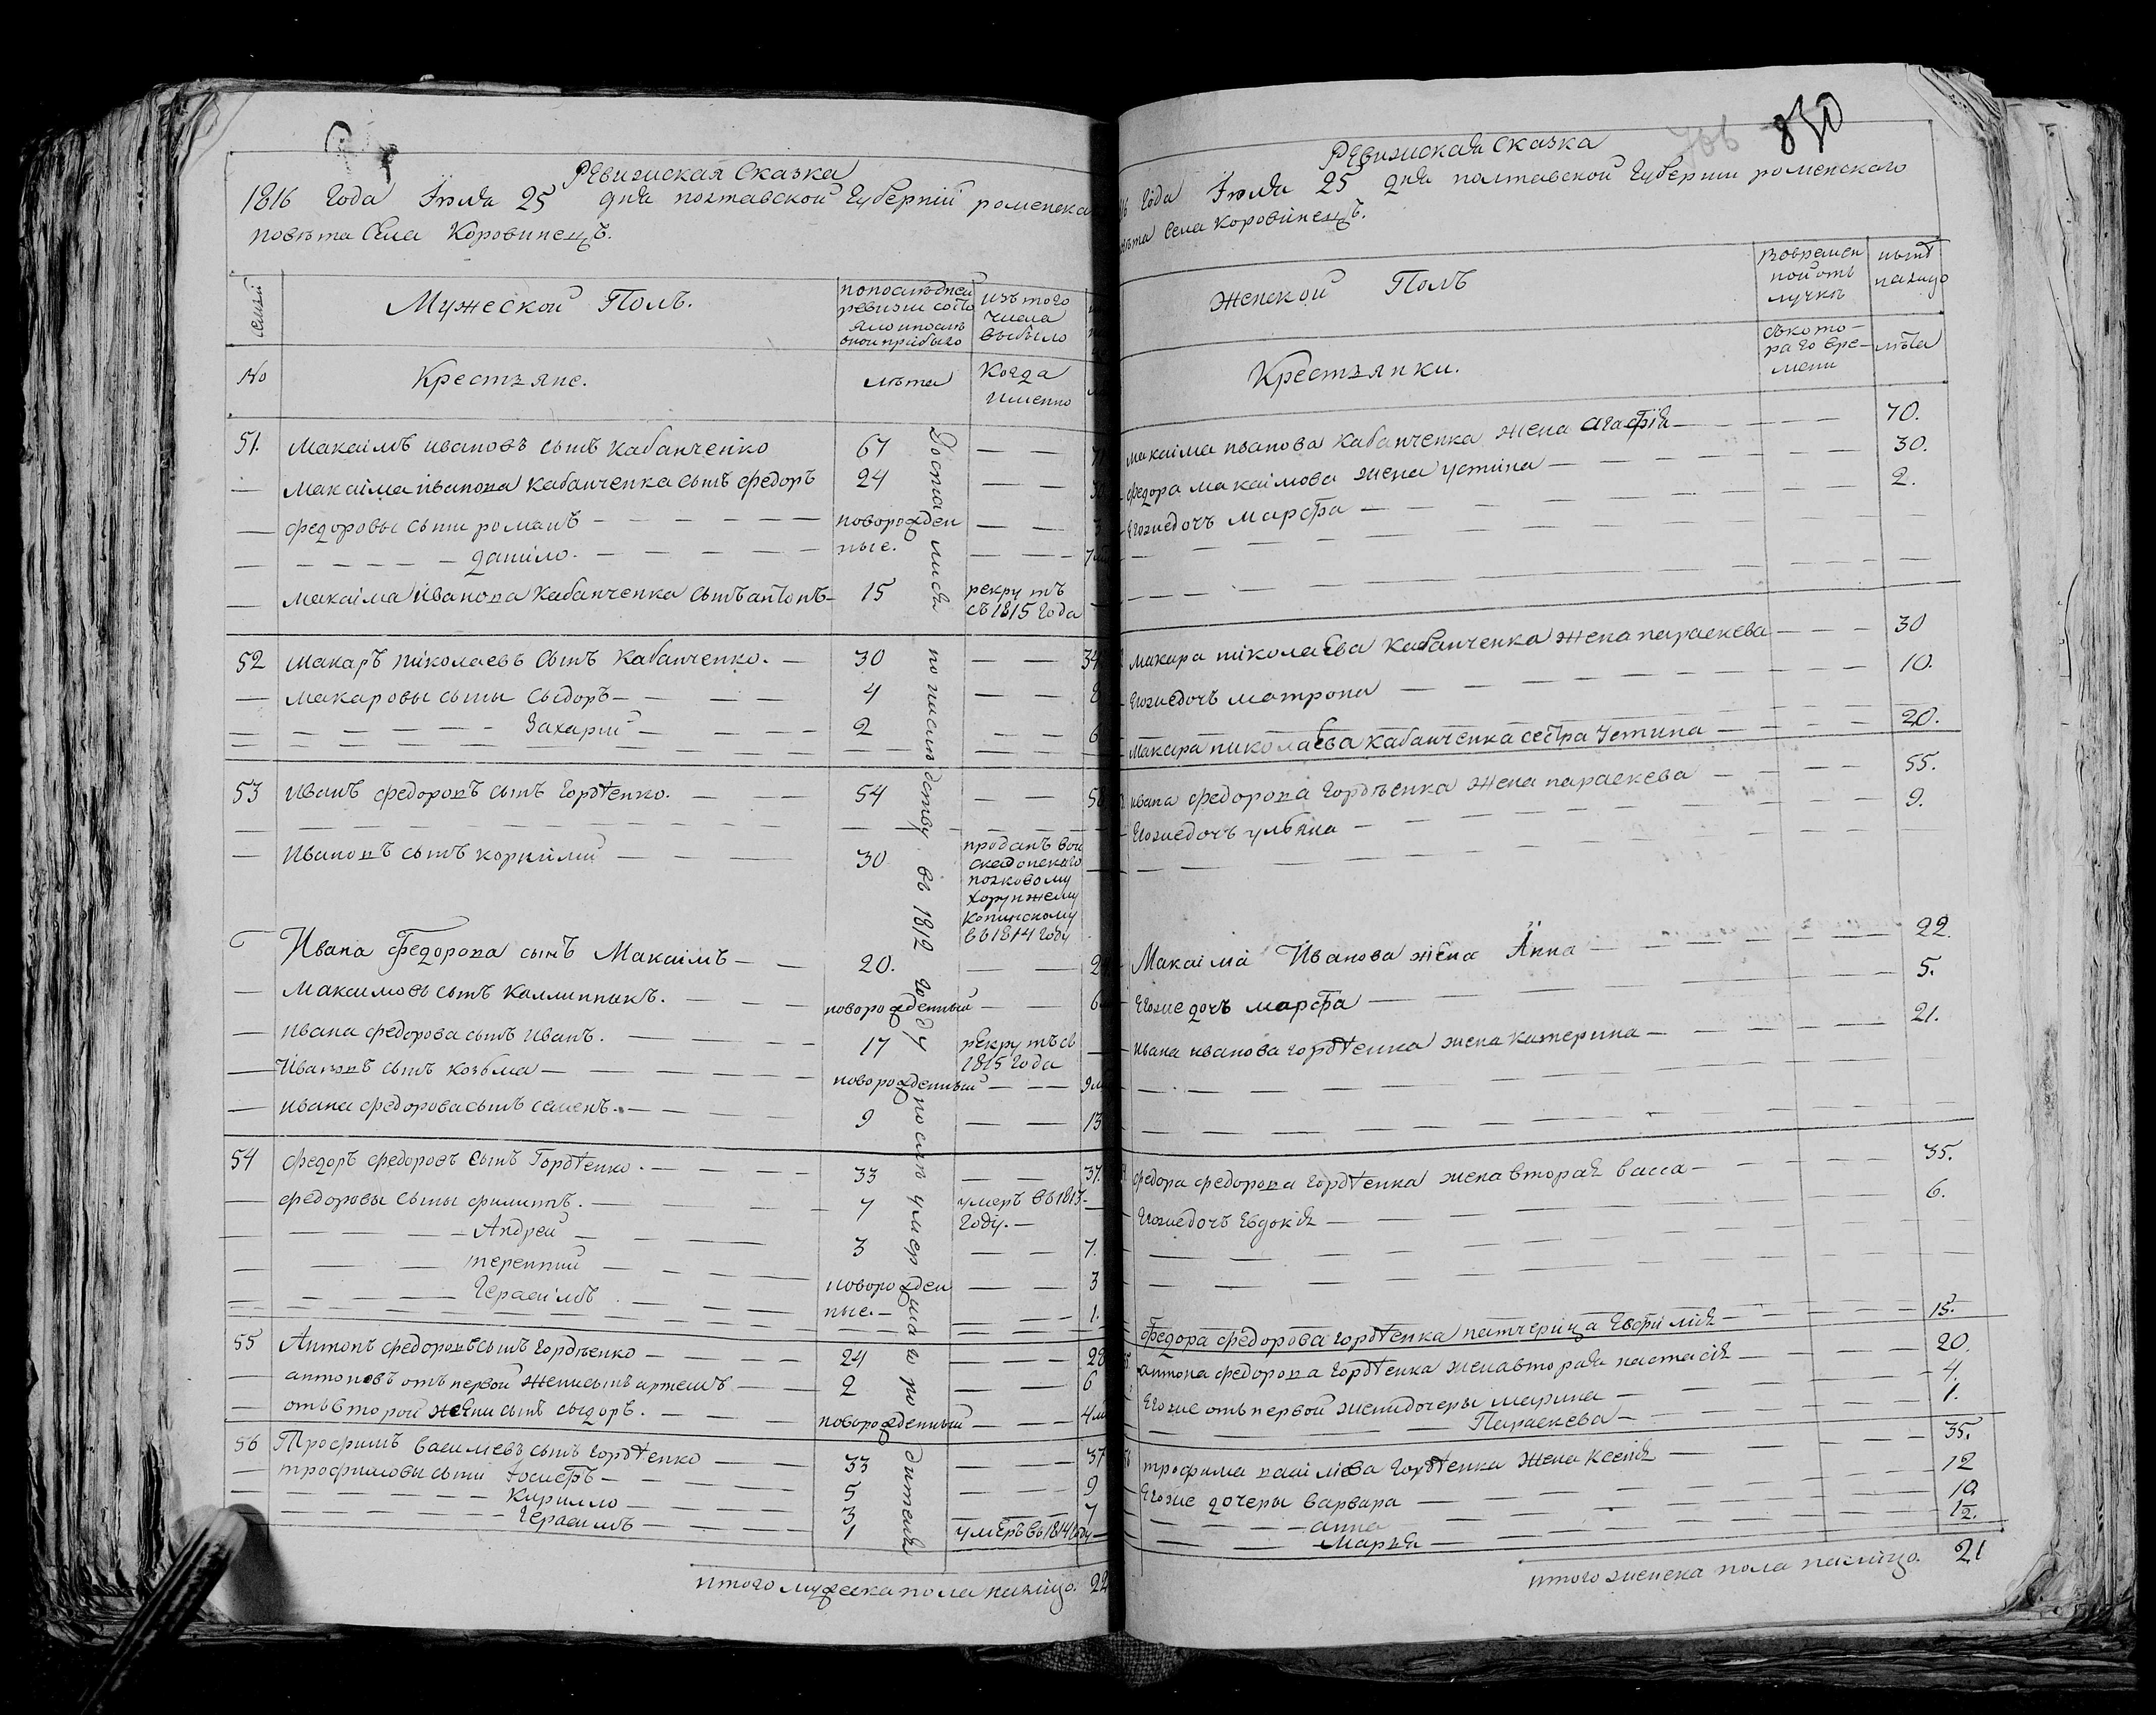 Ревизиская Сказка
1816 года Июля 25 дня полтавской Губерній роменска
повѣта Села Коровинецъ.
семьи
Мужеской Полъ.
попоследней
ревизии состо
яло ипослѣ
оной прибыло
изъ того
числа
выбыло
No
Крестьяне.
лѣта
Когда
Именно
Достались по наследству въ 1812 году послѣ умер шаго родителя
51. Максімъ ивановъ сынъ Кабанченко 67 — —
— Максіма іванова кабанченка сынъ федоръ 24 — —
— федоровы сыни романъ — новорожден — — 3
— — данило. — ные. — —
— Максіма Иванова Кабанченка сынъ антонъ — 15 рекрутъ
съ 1815 года
52 Макаръ ніколаевъ сынъ Кабанченко. — 30 — — 34
— макаровы сыны Сыдоръ — 4 — — 8
— — Захарій — 2 — — 6
53 Иванъ федоровъ сынъ Гордѣенко. — 54 — — 58
— Ивановъ сынъ корнилий — 30.
проданъ вои
полковому
хорунжему
въ 1814 году
Ивана Федорова сынъ Максімъ — 20. — — 24
— Максимовъ сынъ Каллинникъ. — новорожденный — — 6
— ивана федорова сынъ иванъ. — 17 рекрутъ съ
1815 года
— Ивановъ сынъ козьма — новорожденный — — 9 м
— ивана федорова сынъ семенъ. — 9 — — 13
54 федоръ федоровъ сынъ Гордѣенко. — 33 — — 37.
— федоровы сыны филиппъ. — 7 умеръ въ 1813
году. —
— Андрей — 3 — — 7.
— терентий — новорожден — — 3
— Герасімъ — ные. — — 1.
55 Антонъ федоровъ сынъ Гордѣенко — 24 — — 28
— антоновъ отъ первой жени сынъ артемъ — 2 — — 6
— отъ второй жени сынъ сыдоръ. — новорожденный — — 4 м
56 Трофимъ васильевъ сынъ Гордѣенко — 33 — — 37
— трофимовы сыни Іосифъ — 5 — — 9
— Кирилло — 3 — — 7
— Герасимъ — 1 умеръ въ 1814 году —
итого мужеска пола налицо. 22
830
Ревизиская Сказка
16 года Июля 25 дня полтавской Губерніи роменскаго
повѣта Села Коровінецъ.
Женской Полъ
Вовремен
ной отъ
лучкѣ
нынѣ
налицо
Крестьянки.
съ кото-
раго вре-
мени
лѣта
Максіма иванова Кабанченка жена Агафія — 70.
федора максімова жена устіна — 30.
Егожедочь Марфа — 2.
Макара ніколаева Кабанченка жена параскева — 30
Егожедочь матрона — 10.
Макара николаева кабанченка сестра Устина — 20.
ивана федорова Гордѣенка жена параскева — 55.
Егожедочь ульяна — 9.
Максіма Иванова жена Анна — 22.
Егоже дочь марфа — 5.
ивана иванова гордѣенка жена катерина — 21.
федора федорова гордѣенка жена вторая васса — 35.
Егожедочь Евдокія — 6.
Федора федорова гордѣенка патчерица Евфимія — 15.
антона федорова гордѣенка жена вторая настасія — 20.
Егоже отъ первой жени дочеры марина — 4.
— Параскева — 1.
трофима василіева Гордѣенка жена Ксенія — 35.
Егоже дочеры варвара — 12
— анна — 10
— Марія — 1/2.
итого женска пола налицо. 21